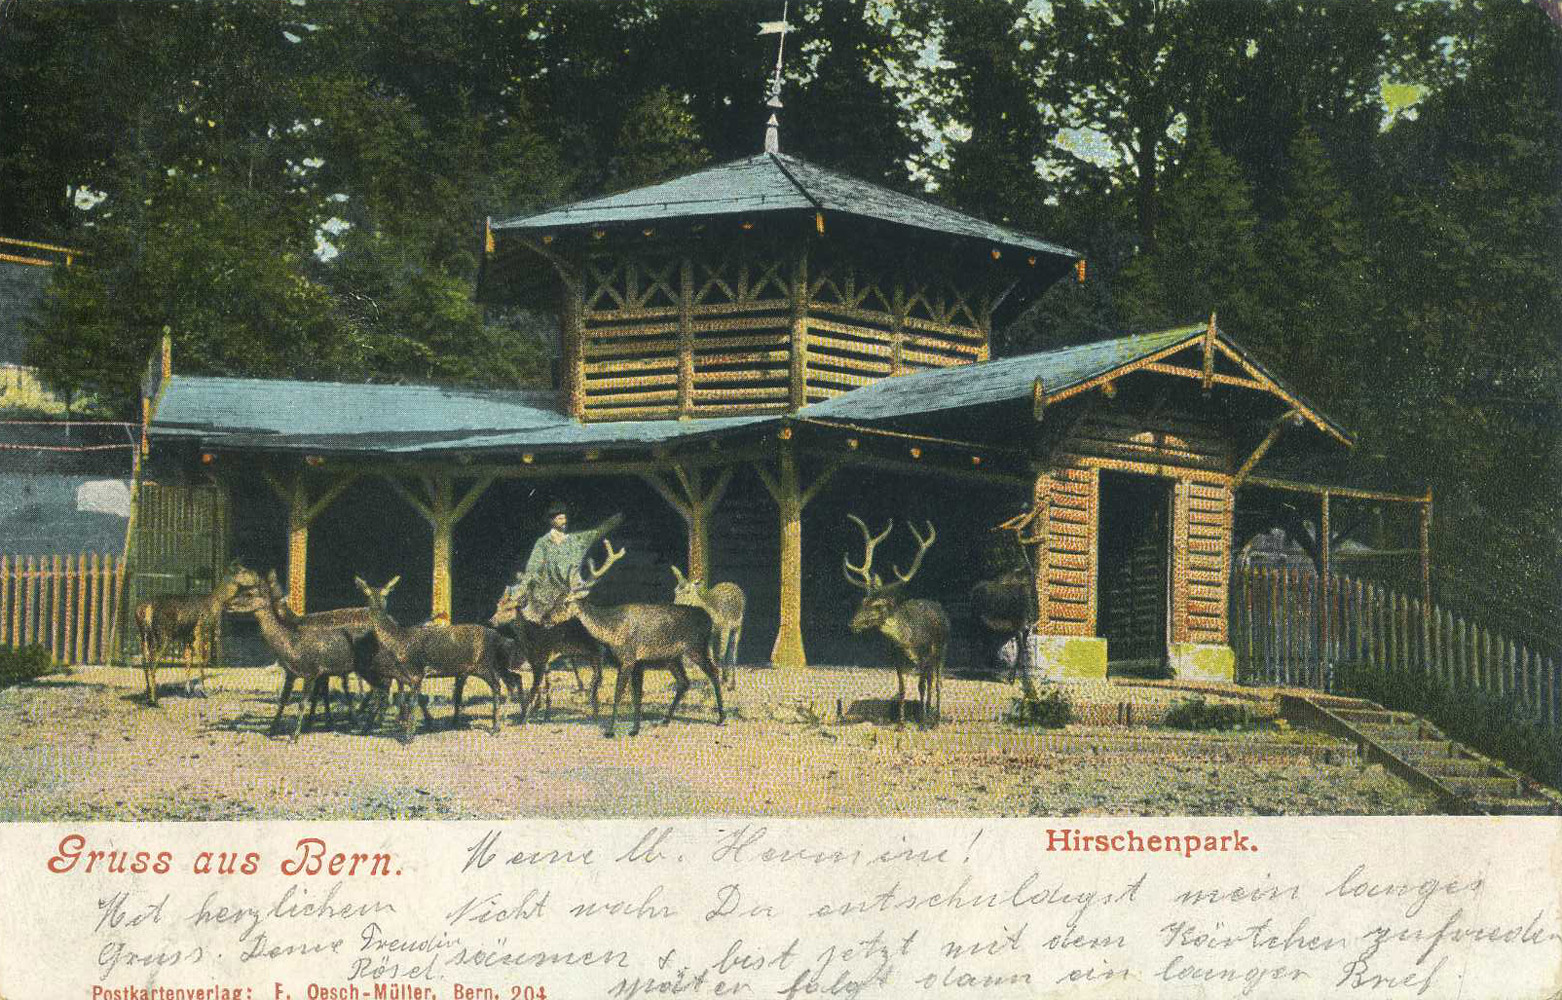 Gruss aus Bern.
Hirschenpark.
Meine lb. Hermine!
Nicht wahr Du entschuldigst mein langes
säumen & bist jetzt mit dem Kärtchen zufrieden
später folgt dann ein langer Brief.
Mit herzlichem
Gruss. Deine Freudin
Rösel.
Postkartenverlag: F. Oesch-Müller, Bern. 204